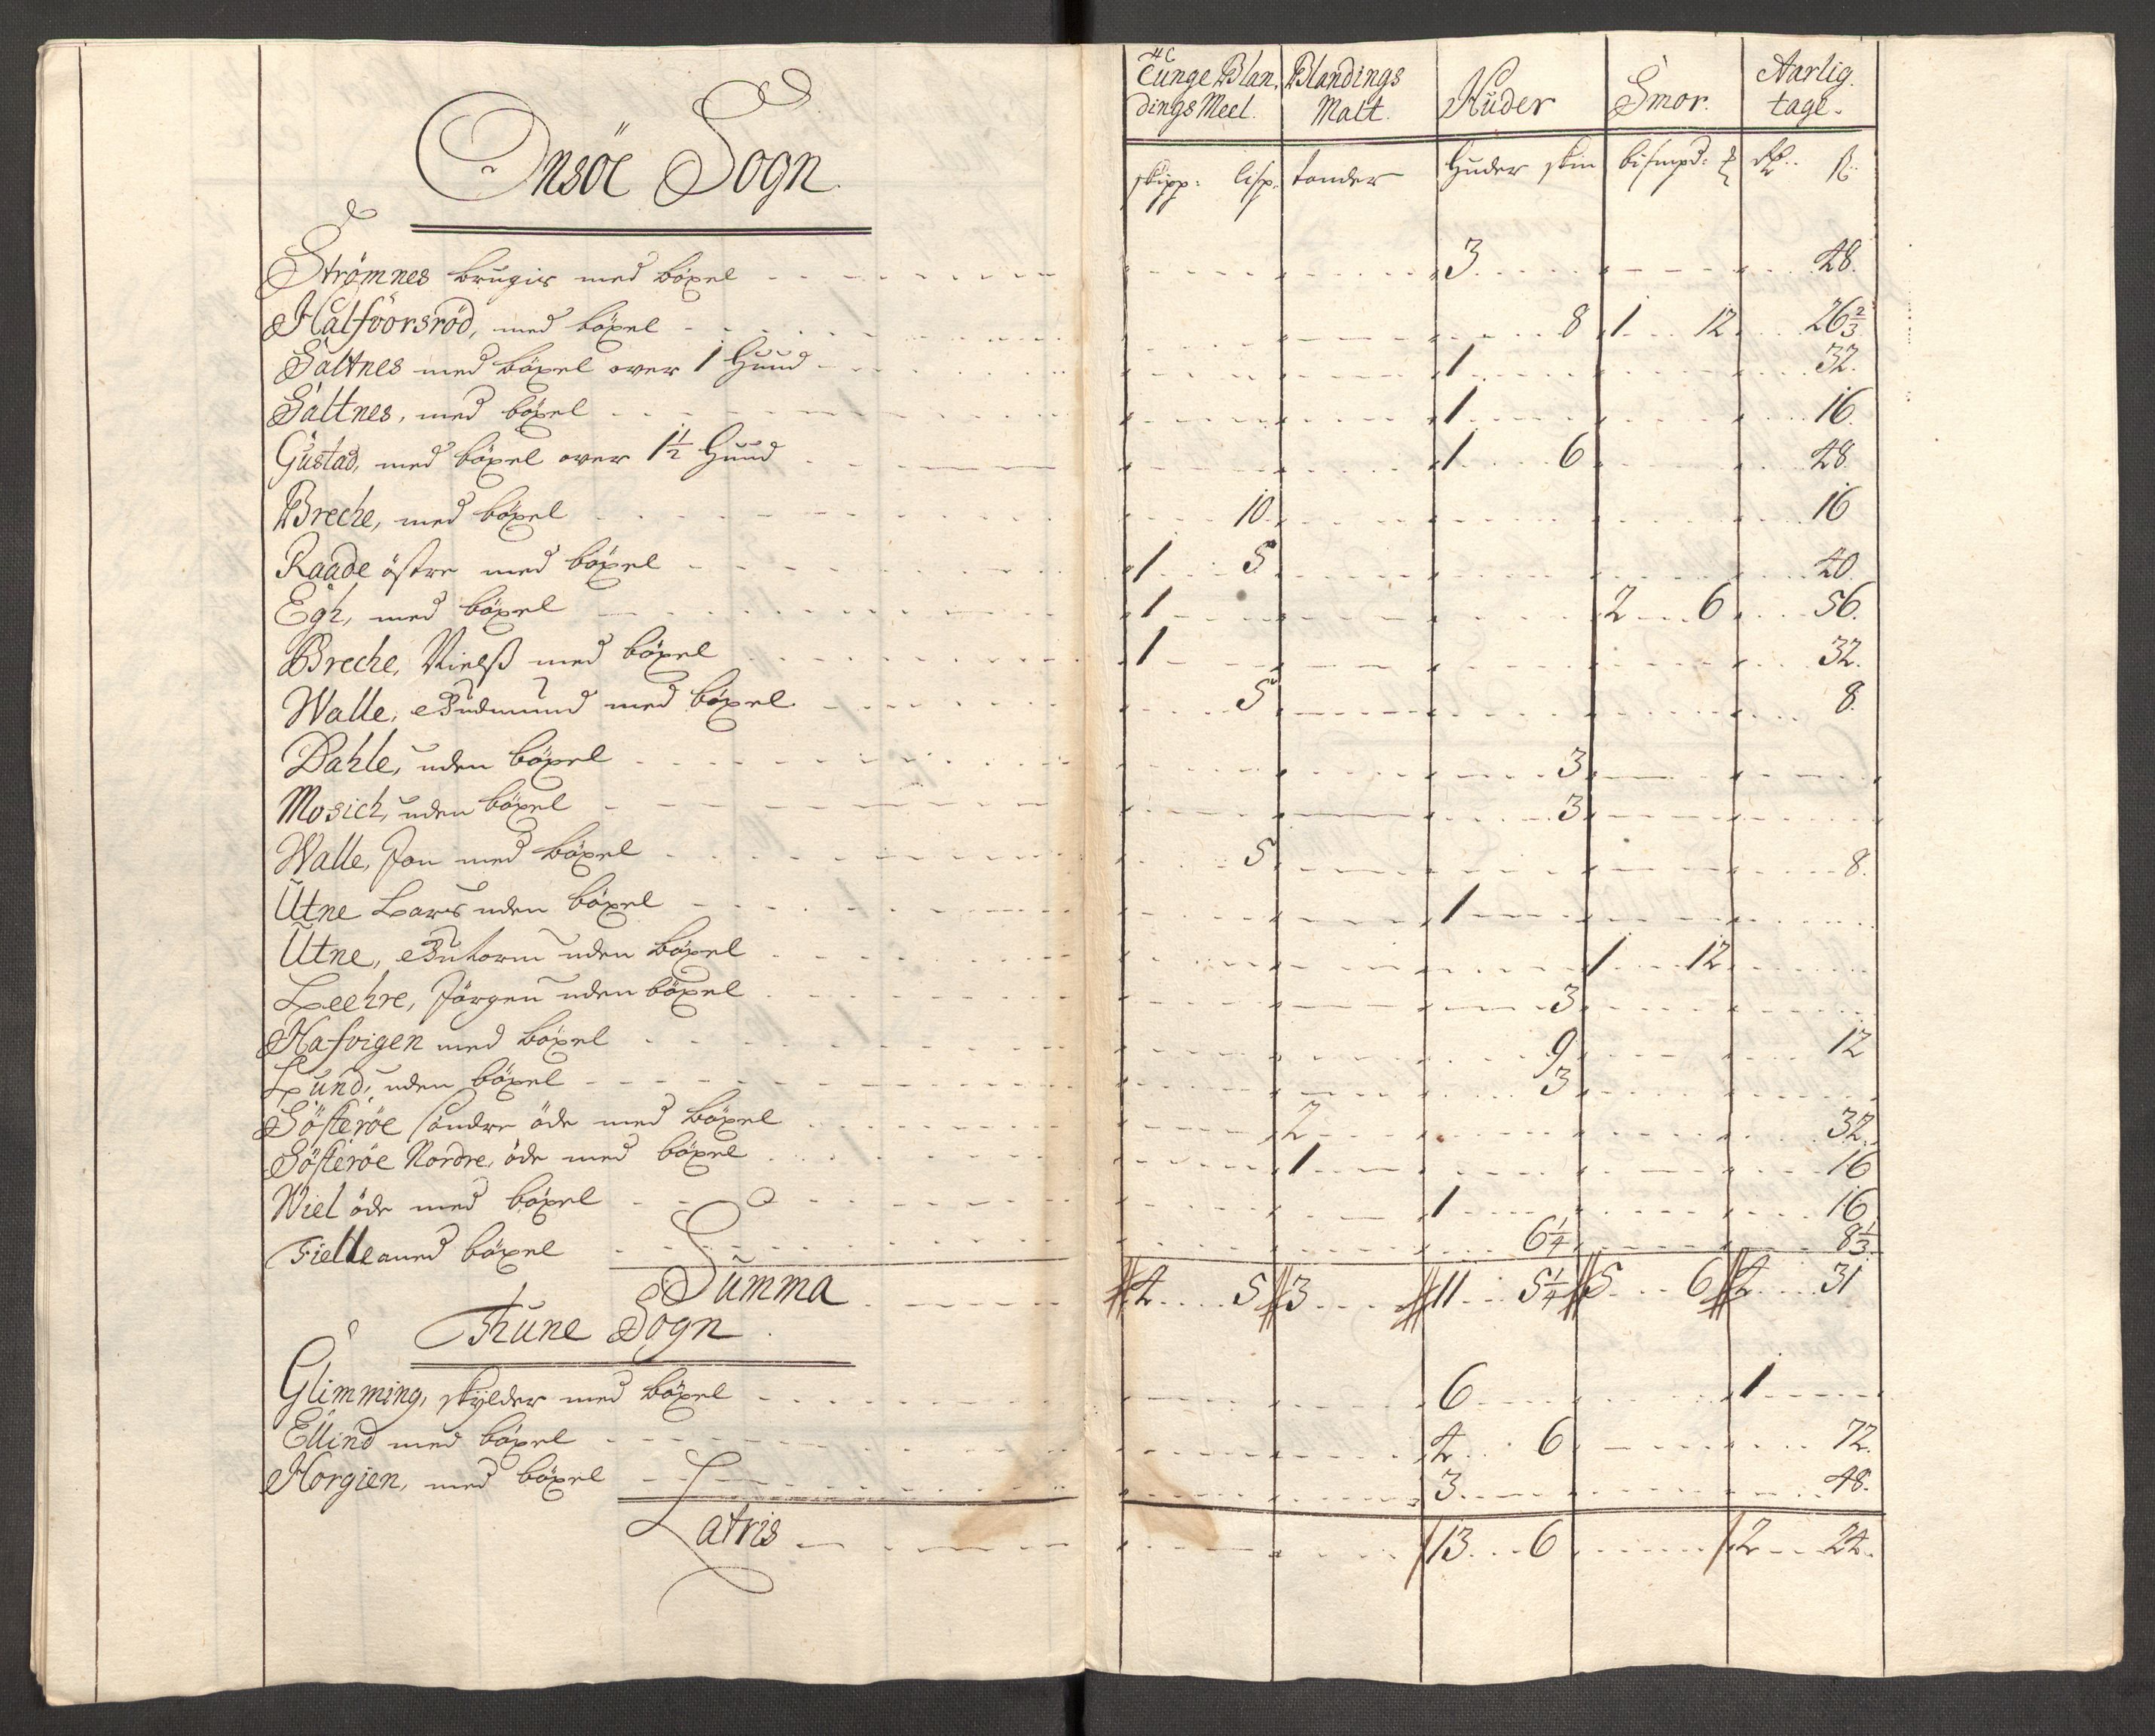 Onsöe Sogn.
Tunge Blandings Meel. | Blandings Malt. | Huder | Smör. | Aarlig tage.
skipp: lisp. | tonder | Huder skin | bismpd: | ß
Strömnes brugis med böxel 3 48.
Halfvorsröd, med böxel 8 1 12 26 2/3
Saltnes med böxel over 1 Huud 1 32.
Saltnes, med böxel 1 16.
Gustad, med böxel over 1 1/2 Huud 1 6 48
Breche, med böxel 10. 16
Raade östre med böxel 1 5 40.
Egh, med böxel 1 2 6 56.
Breche, Nielß med böxel 1 32.
Walle, Gudmund med böxel 5 8.
Dahle, uden böxel 3
Mosich, uden böxel 3
Walle, Jon med böxel 5 8.
Utne Lars uden böxel 1
Utne, Gutorm uden böxel 1 12
Leehre, Jörgen uden böxel 3
Hafvigen med böxel 9 12
Lund, uden böxel 3
Sösteröe söndre öde med böxel 2 32.
Sösteröe Nordre, öde med böxel 1 16
Wiel öde med böxel 1 16
Fielle med böxel 6 1/4 8 1/3
Summa 4 5 3 11 5 1/4 5 6 4 31
Thune Sogn.
Glimming, skylder med böxel 6 1
Ellind med böxel 4 6 72.
Horgien, med böxel 3 48.
Latris 13 6 2 24.